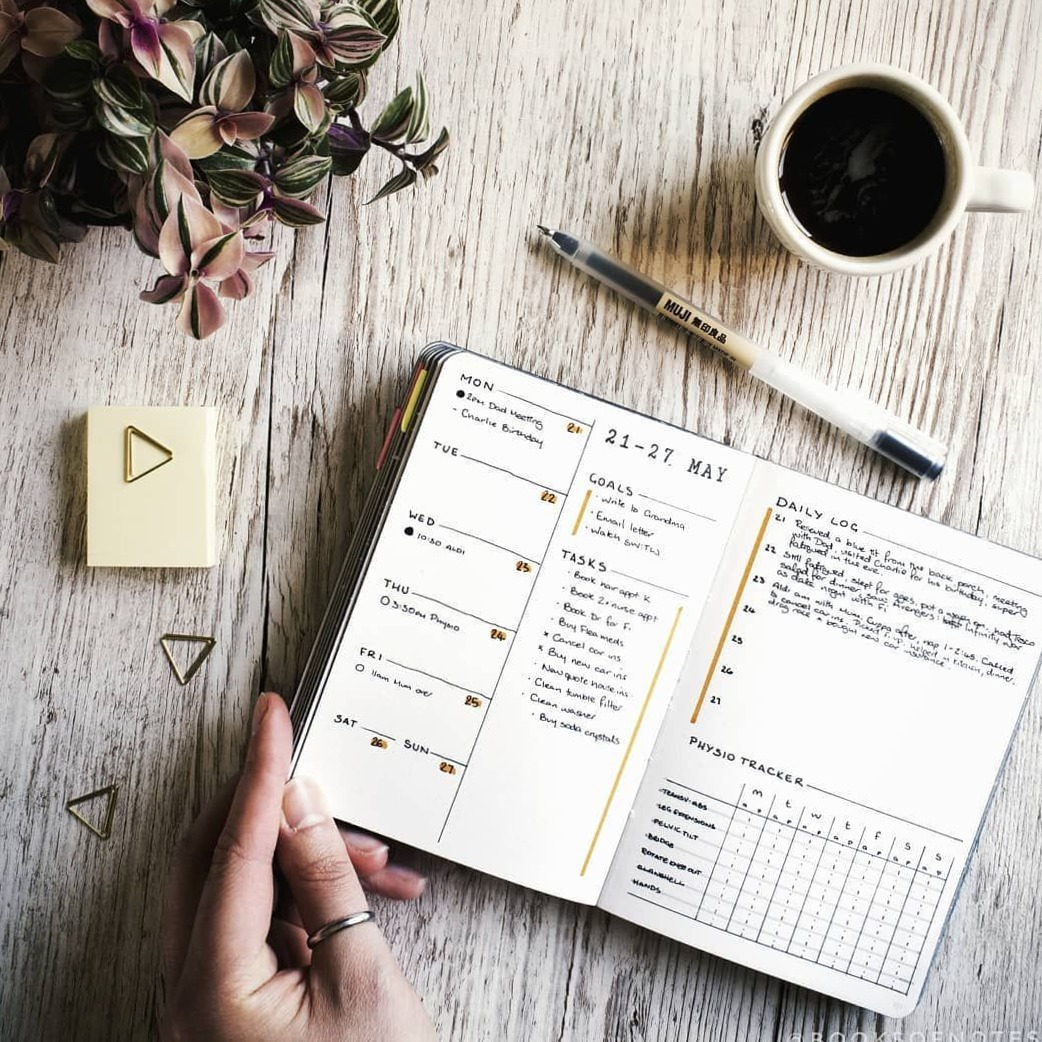 MUJI 無印良品
MON
2pm Dad Meeting
21
- Charlie Birthday
TUE
22
WED
10:30 ALDI
23
THU
3:30pm Physio
24
FRI
11am Mum over
25
SAT
26
SUN
27
21-27 MAY
GOALS
· Write to Grandma
· Email letter
· Watch
TASKS
· Book hair appt K
· Book 2x nurse appt
· Book Dr for F.
· Buy Flea meds
x Cancel car ins.
x Buy new car ins
· New quote house ins.
· Clean tumble filter
· Clean washer
· Buy soda crystals
DAILY LOG
21 a blue tit from the back porch, meeting
with Dad, visited Charlie for his birthday, super
fatigued in the eve.
22 Still fatigued, slept for ages, put a wash on, had Tesco
salad for dinner, saw Avengers: Infinity War
as date night with F.
23 Aldi am with Mum. Cuppa after, nap 1-2:45. Called
to cancel car ins. Picked F. up, helped in kitchen, dinner,
drag race & bought new car insurance.
24
25
26
27
PHYSIO TRACKER
m t w t f s s
a p a p a p a p a p a p a p
TRANSV. ABS
LEG EXTENSIONS
PELVIC TILT
BRIDGE
ROTATE KNEE OUT
CLAMSHELL
HANDS
@BOOKSOFNOTES